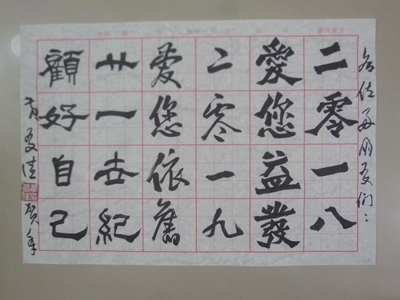 各位好朋友们：
二零一八
爱您益發
二零一九
爱您依舊
廿一世紀
顧好自己
贺年